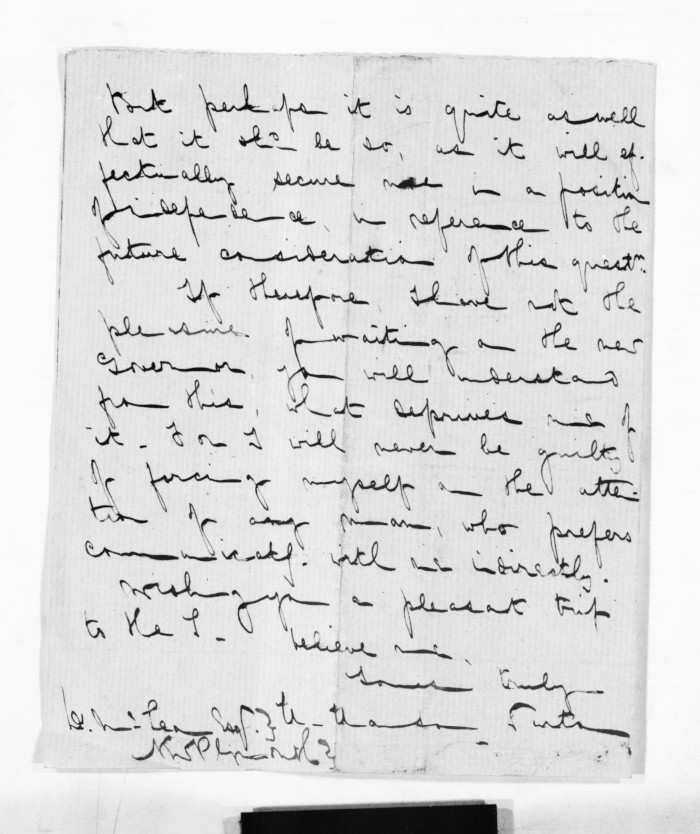 But perhaps it is quite as well
that it shd. be so, as it will ef-
fectually secure me in a position
of independence, in reference to the
future consideration of this questn.
If therefore, I have not the
pleasure of waiting on the new
Governor, you will understand
from this, what deprives me of
it - For I will never be guilty
of forcing myself on the atten-
tion of any man, who prefers
communicatg. with me indirectly.
Wishing you a pleasant trip
to the S - believe me,
Yours truly
D. McLean Esq. }
New Plymouth }